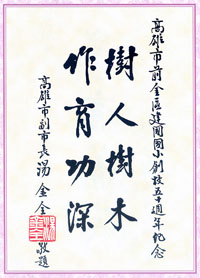 高雄市前金區建國國小創校五十週年紀念
樹人樹木
作育功深
高雄市副市長湯金全敬題